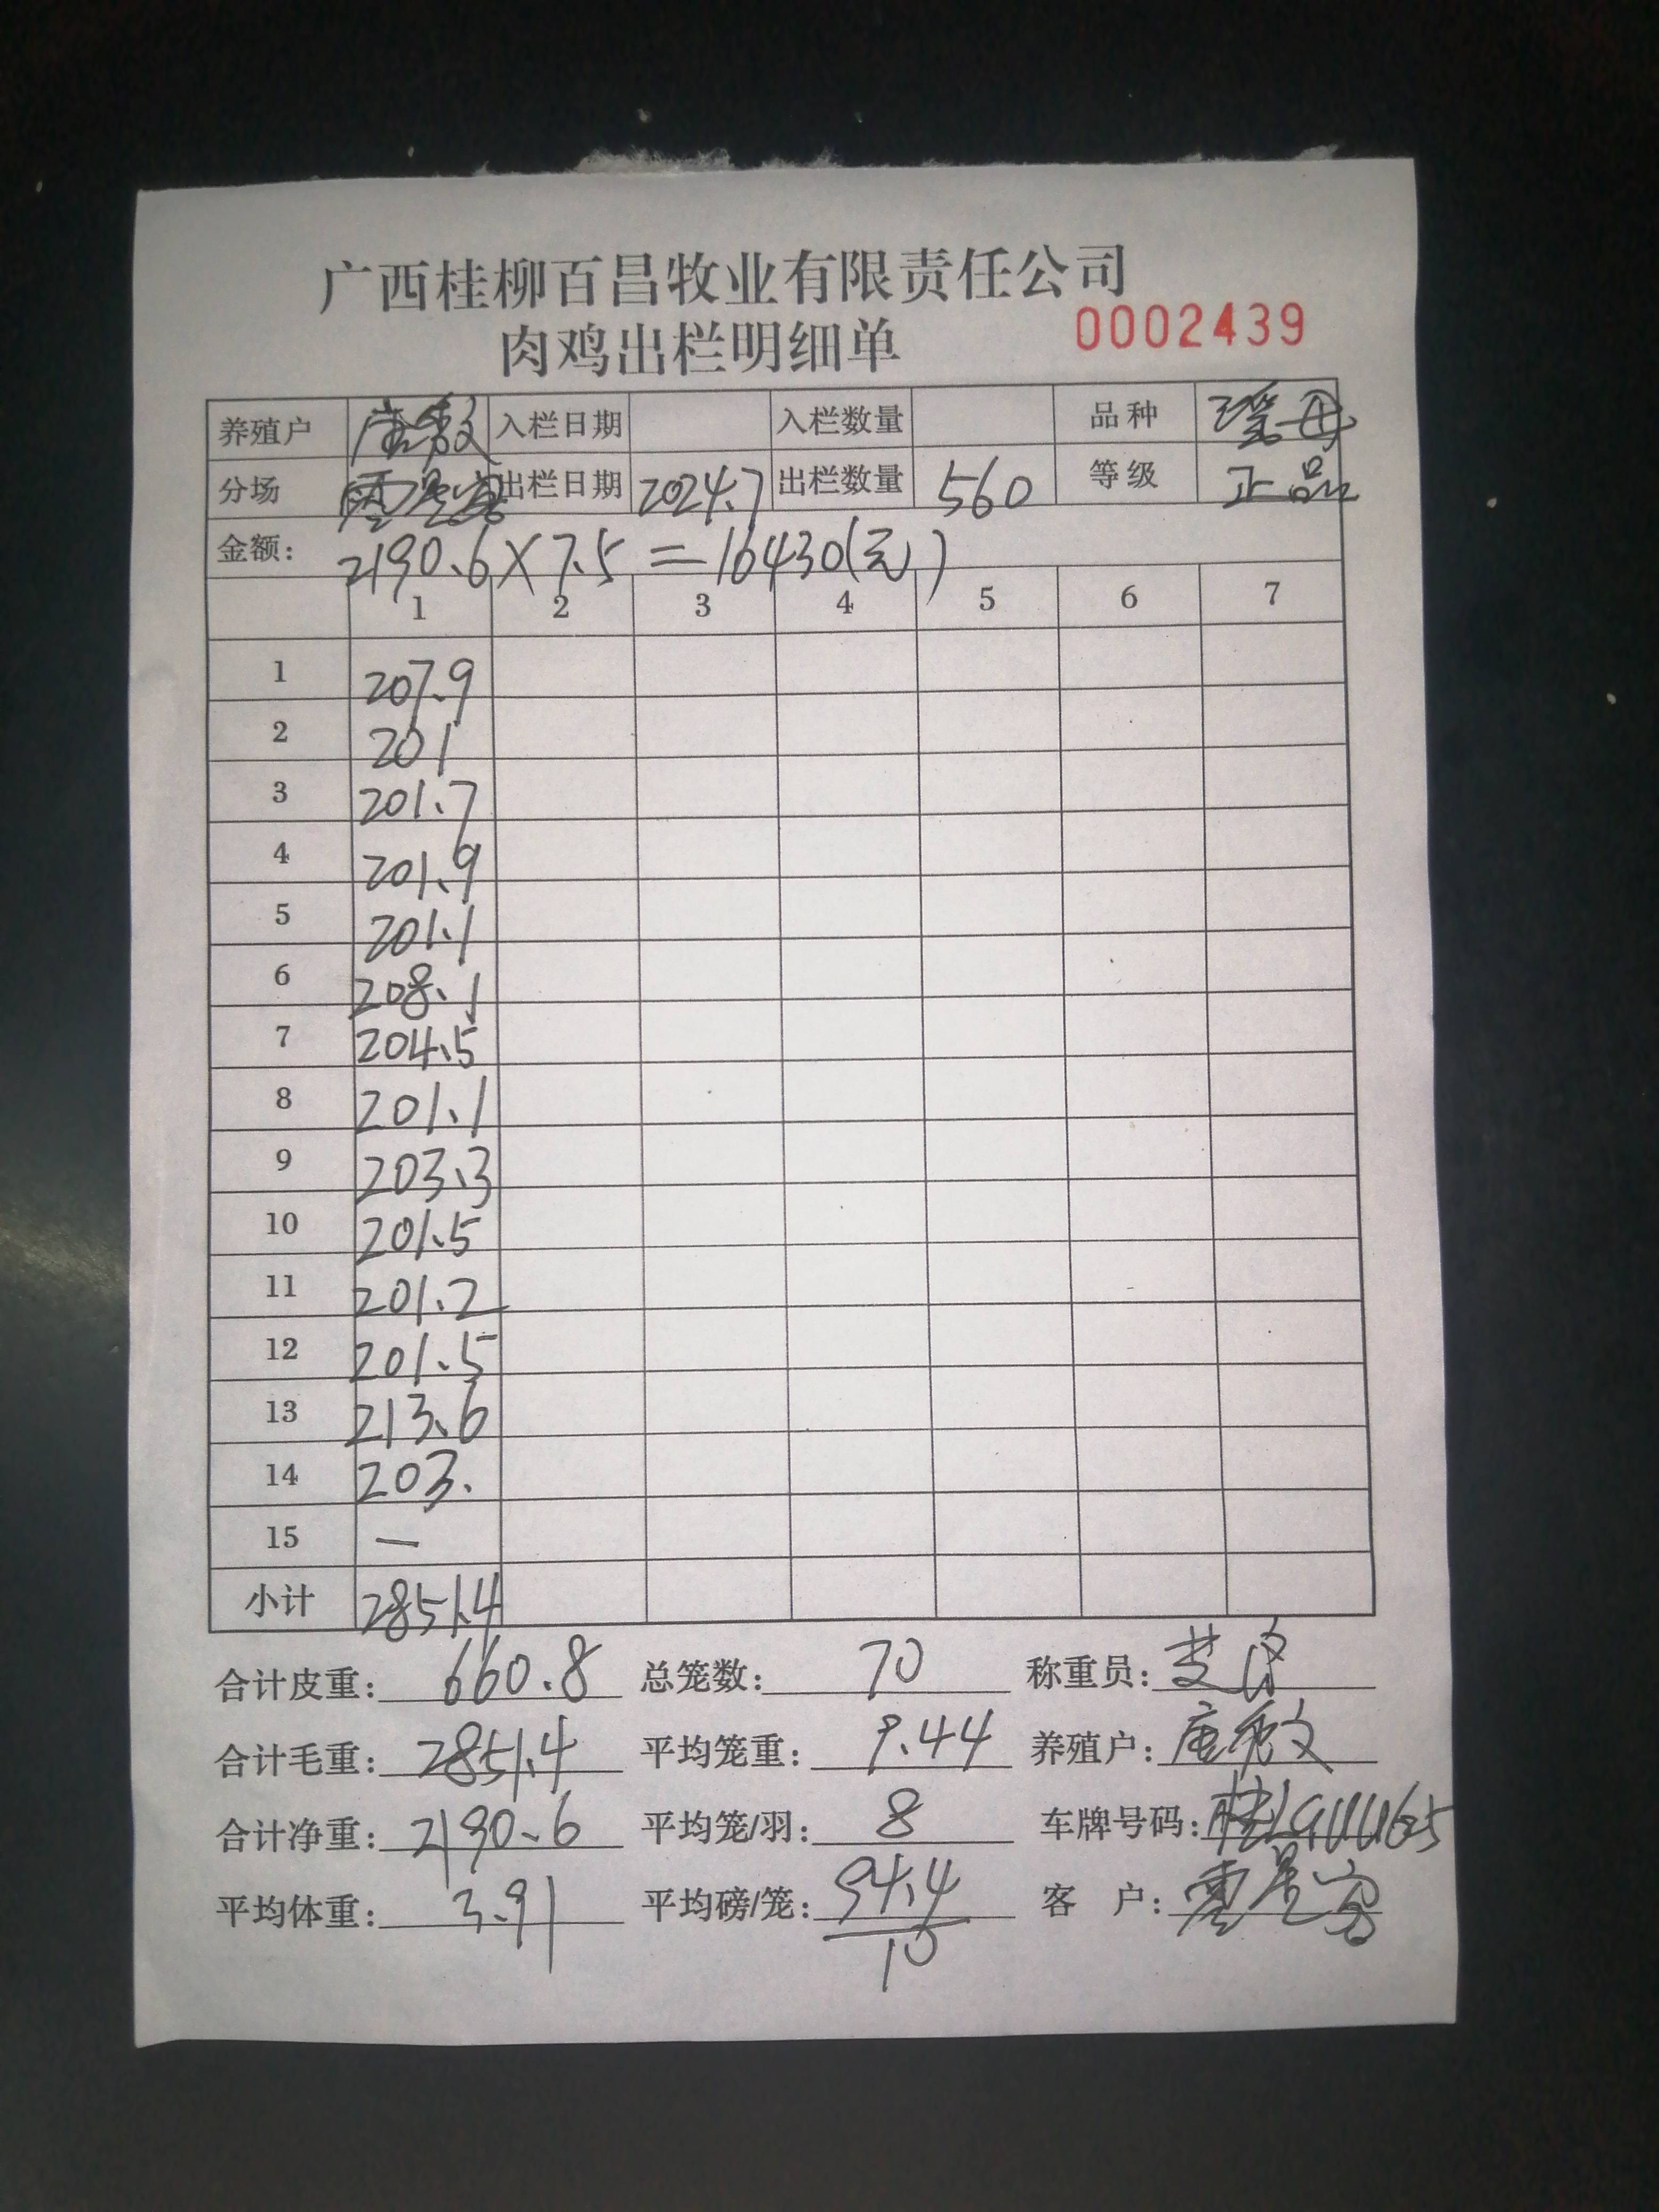 广西桂柳百昌牧业有限责任公司
肉鸡出栏明细单 0002439
养殖户 唐敏 入栏日期 入栏数量 品种 瑶母
分场 出栏日期 2024.7 出栏数量 560 等级 正品
金额: 2190.6×7.5=16430(元)
1 2 3 4 5 6 7
1 207.9
2 201
3 201.7
4 201.9
5 201.1
6 208.1
7 204.5
8 201.1
9 203.3
10 201.5
11 201.2
12 201.5
13 213.6
14 203.
15 —
小计 2851.4
合计皮重: 660.8 总笼数: 70 称重员:
合计毛重: 2851.4 平均笼重: 9.44 养殖户: 唐敏
合计净重: 2190.6 平均笼/羽: 8 车牌号码:
平均体重: 3.91 平均磅/笼: 94.4/10 客 户: